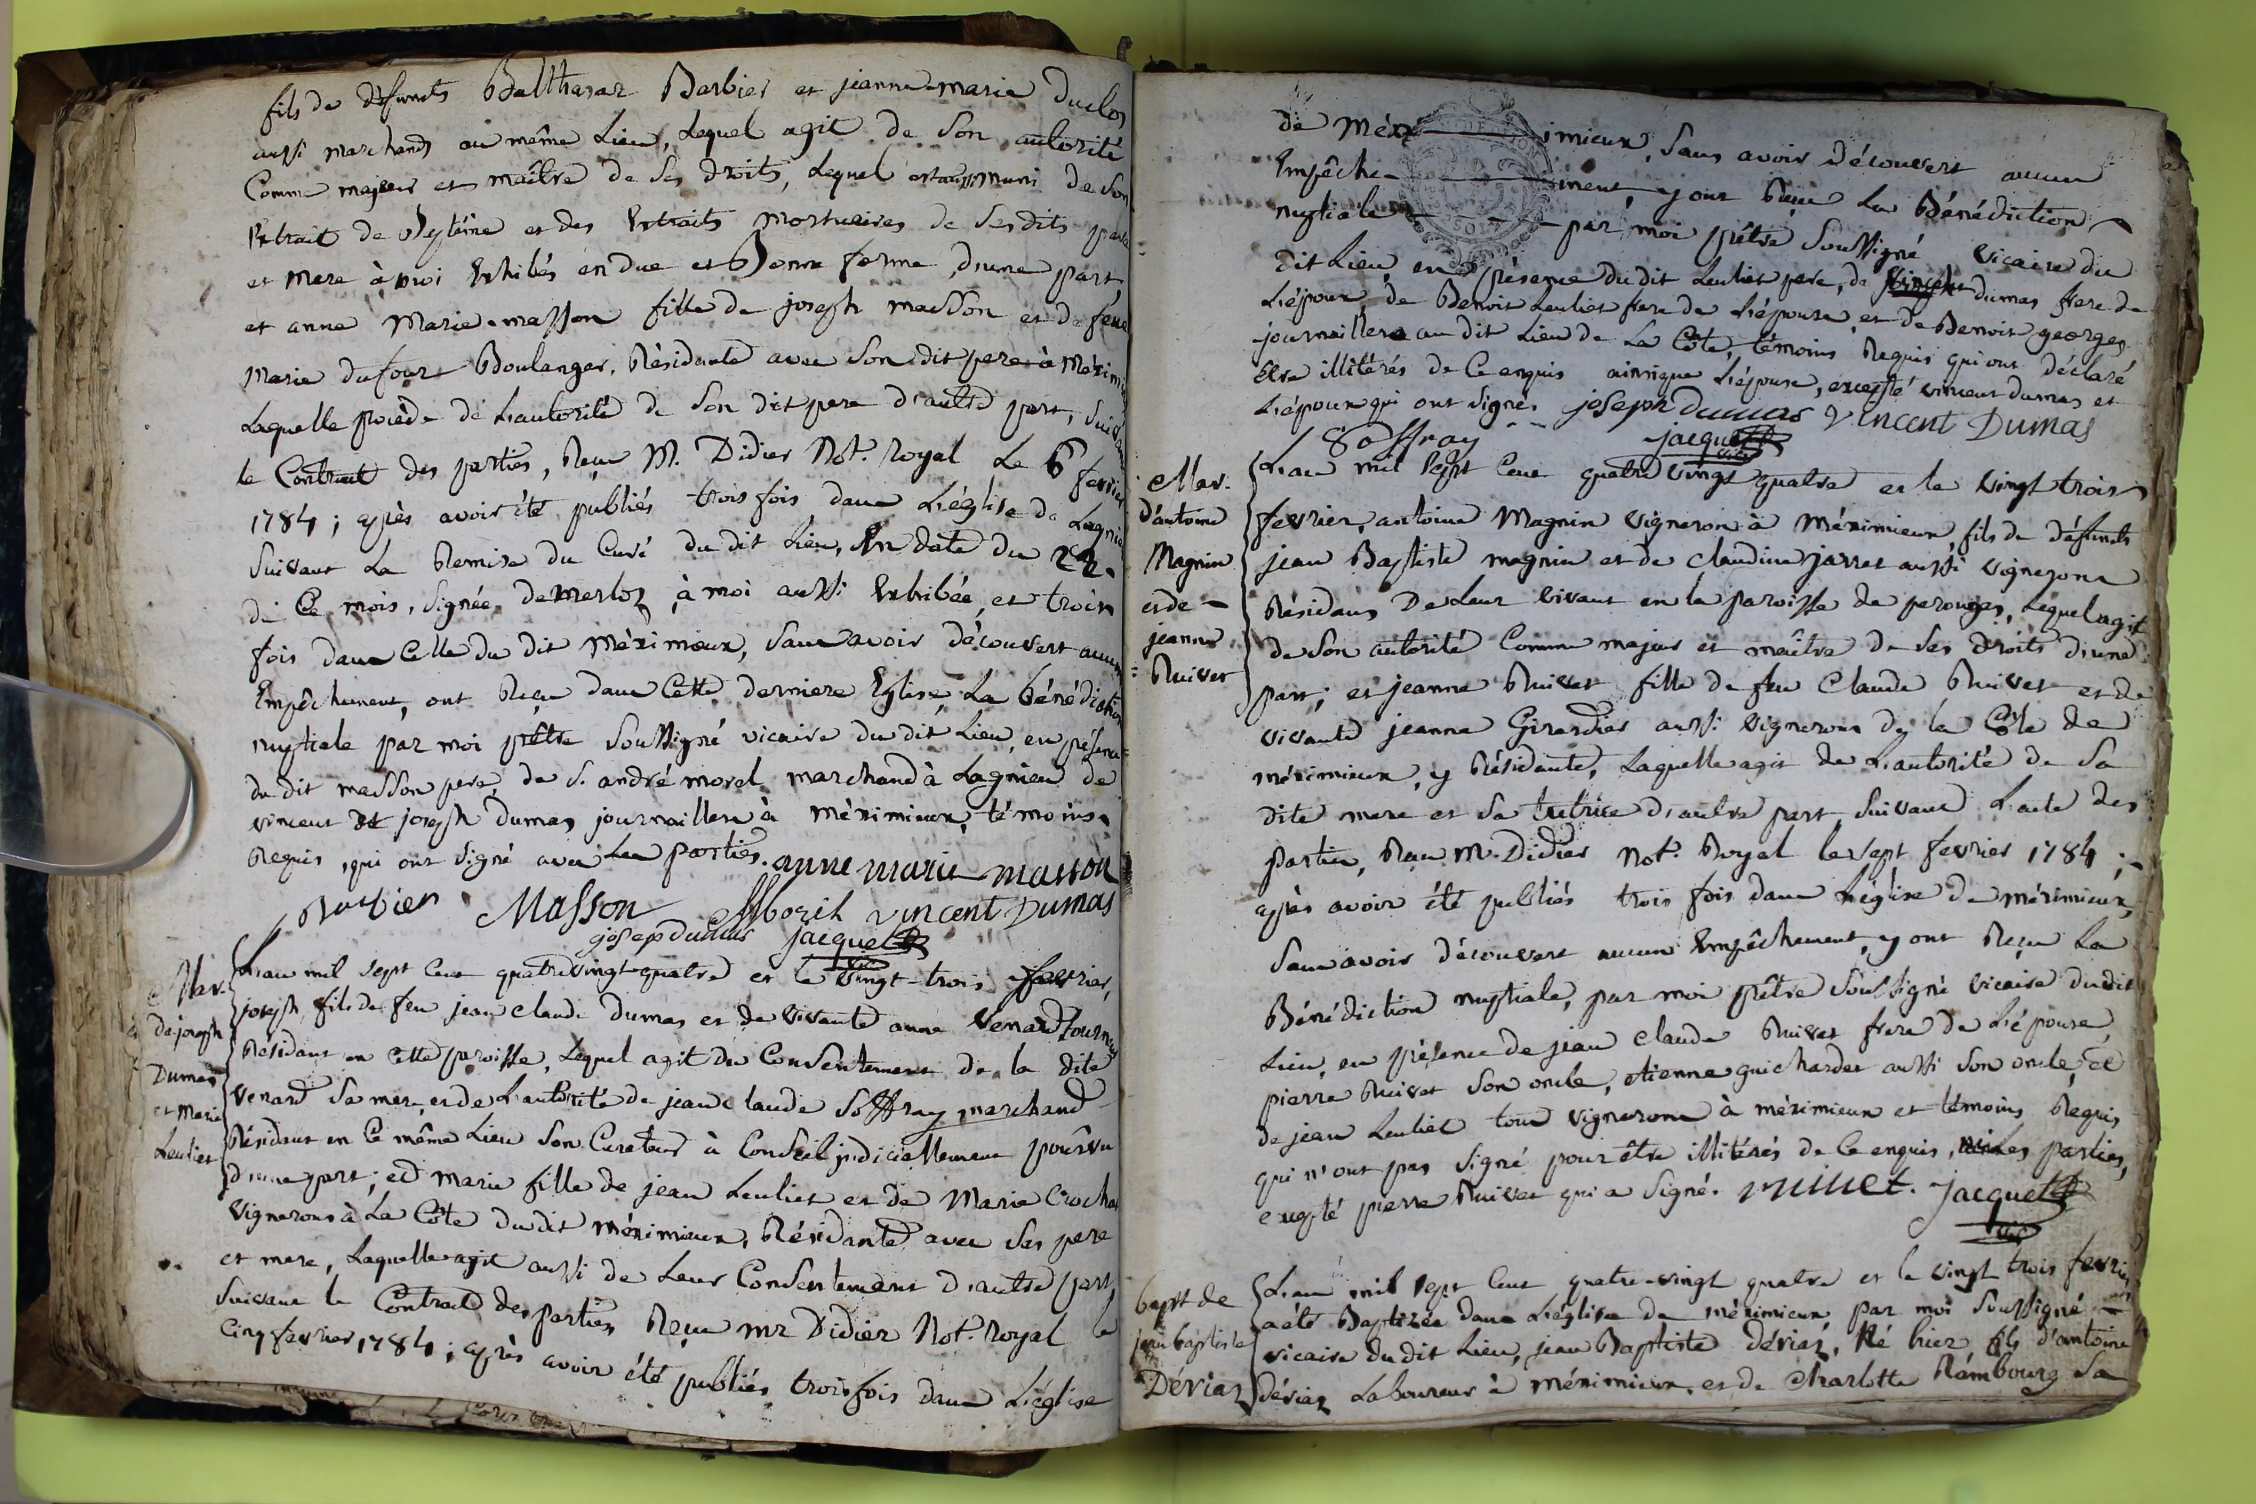 fils de défunts Balthazar Barbier et jeanne marie duclos
aussi marchands au même Lieu, Lequel agit de Son autorité
Comme majeur et maître de Ses droits, Lequel est aussi muni de Son
Extrait de Baptême et des Extraits mortuaires de Sesdits pere
et mere à moi Exhibés en due et Bonne forme, d'une part
et anne Marie masson fille de joseph masson et de feue
Marie dufour Boulanger, Résidante avec Son dit pere à Mérimi
Laquelle procède de L'autorité de Son dit pere d'autre part, Suivant
le Contract des parties, Reçu M. Didier Not. Royal Le 6 fevrier
1784; après avoir été publiés trois fois dans L'église de Lagnieu
Suivant La Remise du Curé du dit Lieu, En date du 22.
de Ce mois, Signée demerloz à moi aussi Exhibée, et trois
fois dans Celle du dit Mérimieux, Sans avoir découvert aucun
Empêchement, ont Reçu dans Cette derniere Eglise La bénédiction
nuptiale par moi prêtre Soussigné vicaire du dit Lieu, en présence
du dit masson pere, de S. andré morel marchand à Lagnieu de
vincent et joseph Dumas journaillers à mérimieux, témoins
Requis, qui ont Signé avec Les parties. anne marie masson
Barbier Masson Morel vincent Dumas
joseph dumas jacquet
vic
Mar.
de joseph
Dumas
et Marie
Leuliet
L'an mil Sept Cent quatrevingt quatre et le vingt-trois fevrier,
joseph fils de feu jean claude Dumas et de vivante anne Venard
Résidant en Cette paroisse, Lequel agit du Consentement de la dite
Venard Sa mere, et de L'autorité de jean claude Soffray marchand
Résidant en Ce même Lieu Son Curateur à Conseil judiciellement pourvu
d'une part; et marie fille de jean Leuliet et de Marie Crochet
Vignerons à La Côte du dit mérimieux, Résidante avec Ses pere
et mere, Laquelle agit aussi de Leur Consentement d'autre part,
Suivant le Contract des parties Reçu mr Didier Not. Royal le
Cinq fevrier 1784; après avoir été publiés trois fois dans L'église
de Mér imieux, Sans avoir découvert aucun
Empêche- ment, y ont Reçu La Bénédiction
nuptiale par moi prêtre Soussigné vicaire du
dit Lieu, en présence du dit Leuliet pere, de vincent dumas frere de
L'époux, de Benoit Leuliet frere de L'épouse, et de Benoit georges
journaillers au dit Lieu de La Côte, témoins Requis qui ont déclaré
Etre illitérés de Ce enquis ainsi que L'épouse, excepté vincent dumas et
L'époux qui ont Signé. joseph dumas Vincent Dumas
Soffray jacquet
vic
Mar.
d'antoine
Magnin
et de
jeanne
Ruivet
L'an mil Sept Cent quatre vingt quatre et le vingt trois
fevrier, antoine Magnin vigneron à Mérimieux, fils de défunts
jean Baptiste magnin et de claudine jarret aussi vignerons
Résidans De Leur vivant en la paroisse de perouges, Lequel agit
de Son autorité Comme majeur et maître de Ses droits d'une
part; et jeanne Ruivet fille de feu Claude Ruivet et de
vivante jeanne Girardier aussi vignerons de la Côte de
mérimieux, y Résidante, Laquelle agit de L'autorité de Sa
dite mere et Sa tutrice d'autre part Suivant L'acte des
parties, Reçu m. Didier Not. Royal le sept fevrier 1784;
après avoir été publiés trois fois dans L'église de mérimieux,
Sans avoir découvert aucun Empêchement, y ont Reçu La
Bénédiction nuptiale, par moi prêtre Soussigné vicaire dudit
Lieu, en présence de jean claude Ruivet frere de L'épouse,
pierre Ruivet Son oncle, etienne guichardet aussi Son oncle, et
de jean Leuliet tous vignerons à mérimieux et témoins Requis
qui n'ont pas Signé pour être illitérés de Ce enquis, ni Les parties,
excepté pierre Ruivet qui a Signé. ruivet. jacquet
vic
bapt de
jean baptiste
Dériaz
L'an mil Sept Cent quatre-vingt quatre et le vingt trois fevrier
a été Baptizée dans L'église de mérimieux par moi Soussigné
vicaire du dit Lieu, jean Baptiste dériaz, Né hier fils d'antoine
dériaz Laboureur à mérimieux, et de Charlotte Rambourg Sa